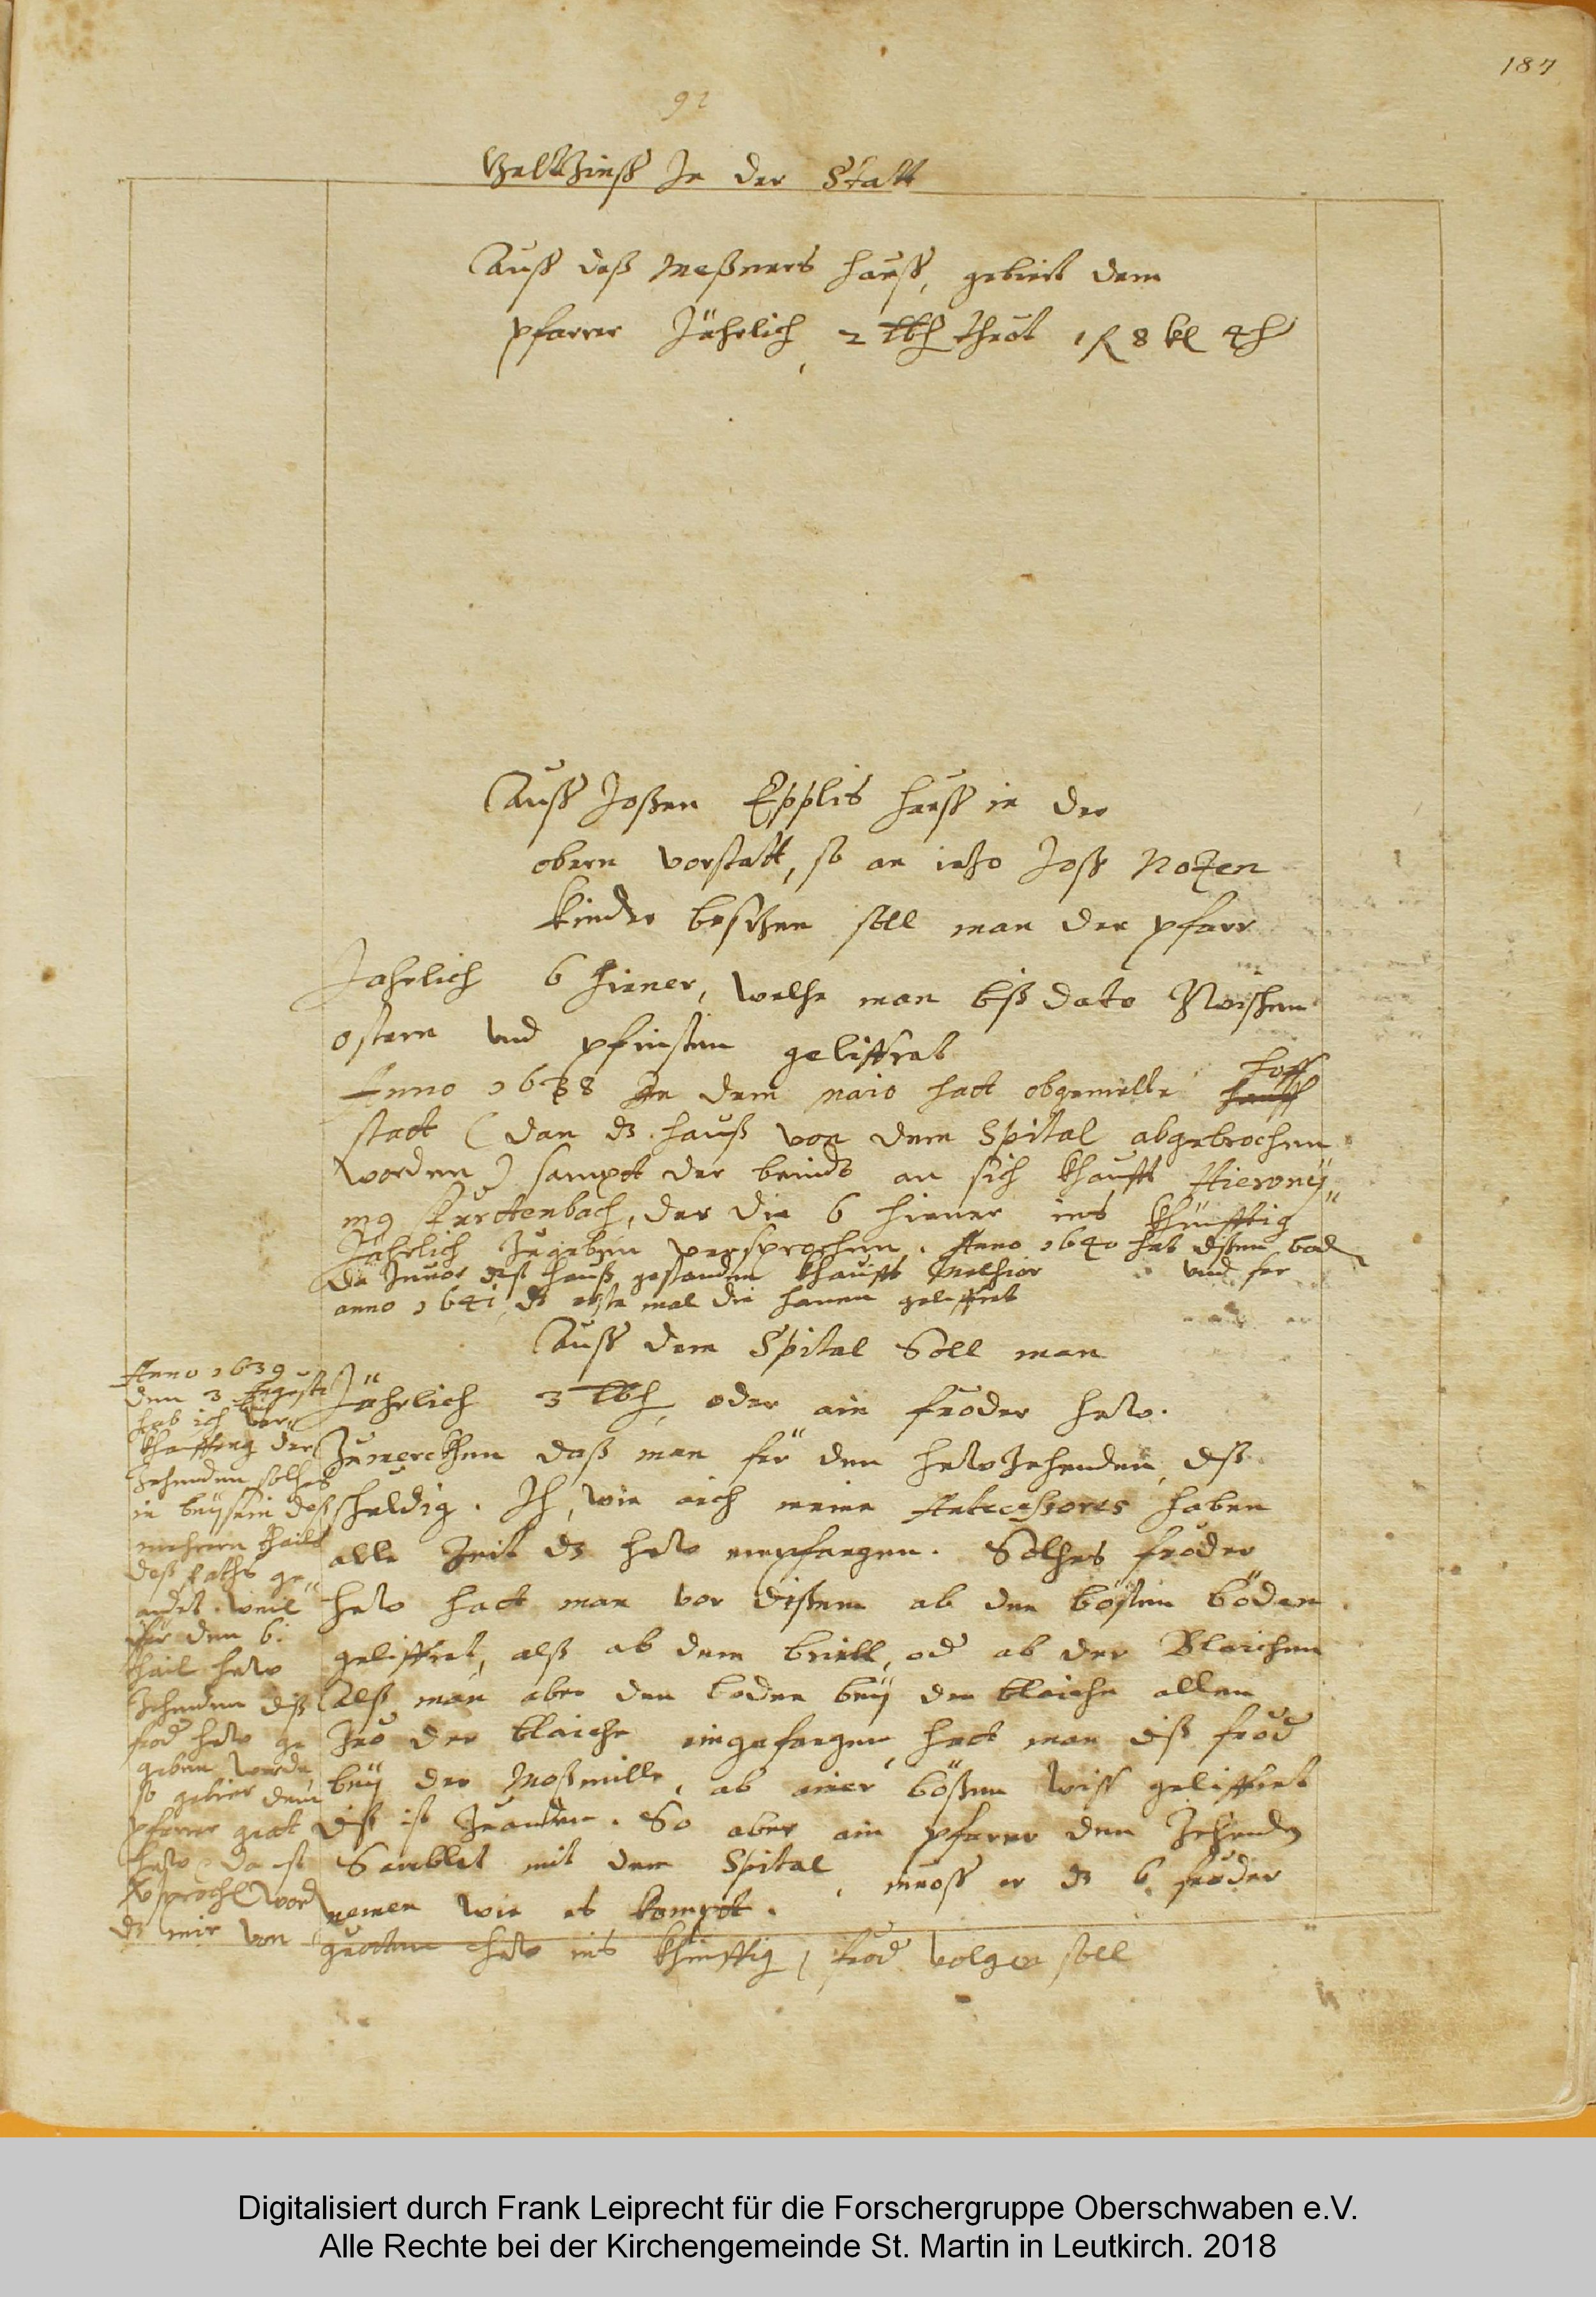 187
92
Geltzinß In der Statt
Auß deß Meßners hauß, gebiert dem
pfarrer Jährlich 2 lb h thuot 1 fl 8 kr 4 h
Auß Joßen Epplis hauß in der
obern vorstatt, so an ietzo Joß Nozen
kinder besitzen soll man der pfarr
Jahrlich 6 hiener, welche man biß dato Zwischen
ostern und pfinsten gelifferet
Anno 1638 In dem maio hatt obgemelte hoff
statt (dan dz hauß von dem Spital abgebrochen
worden) sampt der beindt an sich khaufft Hierony
mus Furttenbach, der die 6 hiener ins khünfftig
Jährlich zugeben versprochen. Anno 1640 hat disen bod
da zuvor diß hauß gestanden khaufft Melchior und er
anno 1641 dz erste mal die hanen gelifferet
Auß dem Spital Soll man
Jährlich 3 lb h, oder ain fuoder hew.
Zumerckhen daß man für den hew Zehenden diß
schuldig. Ich, wie auch meine Antecessores haben
alle Zeit dz hew empfangen. Solches fuoder
hew hatt man vor dißem ab den bösten böden
gelifferet, alß ab dem briell, od ab der Blaichen
Alß man aber den boden bey der blaiche allen
Zuo der blaiche eingefangen hatt man diß fuod
bey der Moßmille, ab einer bößen wiß gelifferet
diß ist Zuanden. So aber ain pfarrer den Zehenden
Samblet mit dem Spital, muoß er dz 6 fuoder
nemen wie es kompt.
Anno 1639
den 3 Augusti
hab ich bey ver
khauffung der
Zehenden solches
in beysein deß
mehrern thails
deß Raths ge
andet. weil
für den 6.
thail hew
Zehenden diß
fuod hew ge
geben werde
so gebier dem
pfarrer guot
hew, da ist
versproch word
dz mir von
guottem hew ins khinfftig 1 fuod volgen soll
Digitalisiert durch Frank Leiprecht für die Forschergruppe Oberschwaben e.V.
Alle Rechte bei der Kirchengemeinde St. Martin in Leutkirch. 2018